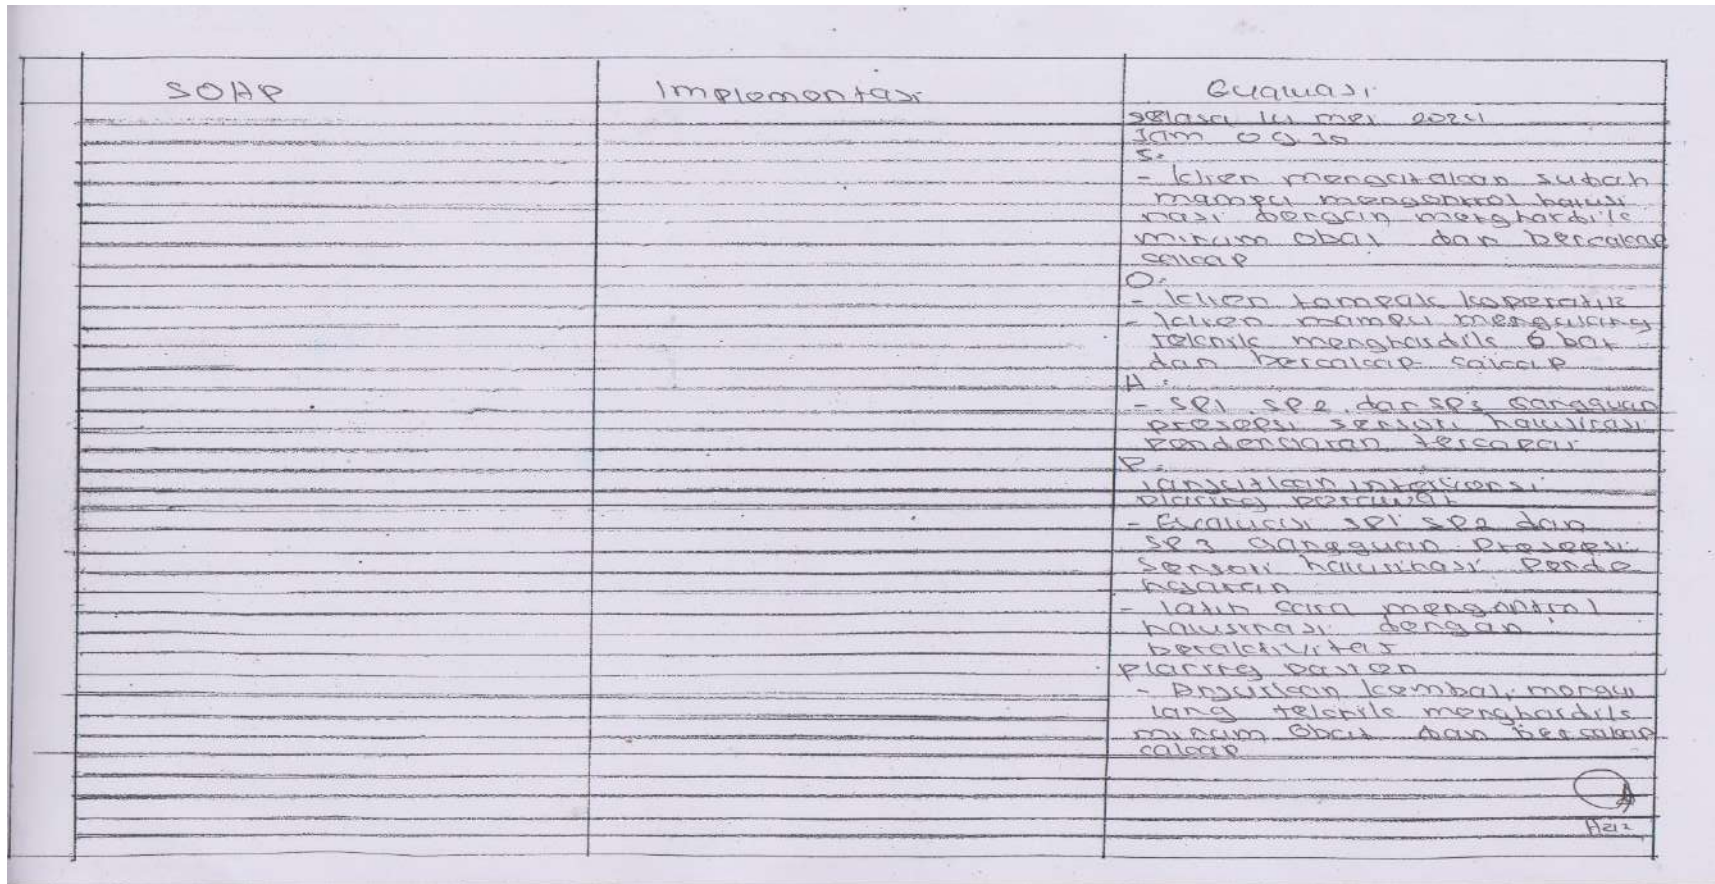 SOAP
Implementasi
Evaluasi
Selasa 14 mei 2024
Jam 09.30
S:
- klien mengatakan sudah
mampu mengontrol halusi
nasi dengan menghardik
minum obat dan bercakap
cakap
O:
- klien tampak koperatif
- klien mampu mengulang
teknik menghardik 6 bat
dan bercakap cakap
A:
- SP1, SP2, dan SP3 Gangguan
presepsi sensori halusinasi
pendengaran tercapai
P:
lanjutkan intervensi
planing perawat
- Evaluasi SP1 SP2 dan
SP3 Gangguan Presepsi
Sensori halusinasi Pende
ngaran
- latih cara mengontrol
halusinasi dengan
beraktivitas
planing pasien
- Anjurkan kembali mengu
lang teknik menghardik
minum Obat dan bercakap
cakap
Aziz